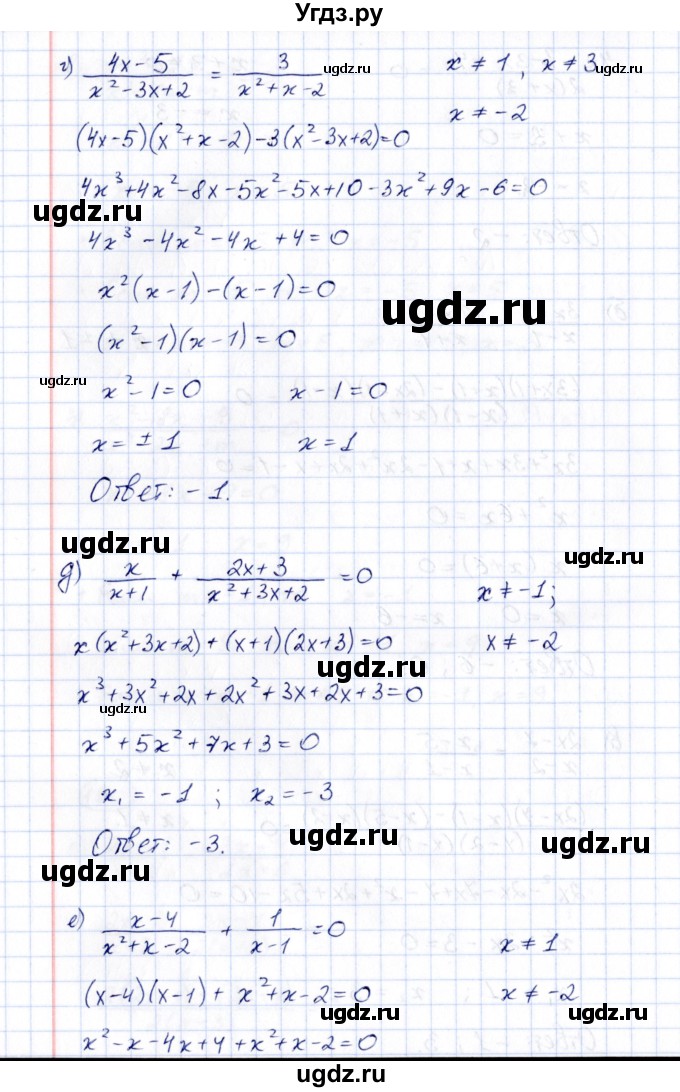 Угдз.ру
г) (4x - 5)/(x² - 3x + 2) = 3/(x² + x - 2)   x ≠ 1, x ≠ 3
ugdz.ru ugdz.ru ugdz.ru
x ≠ -2
(4x-5)(x²+x-2)-3(x²-3x+2)=0
ugdz.ru
4x³+4x²-8x-5x²-5x+10-3x²+9x-6=0
ugdz.ru
4x³-4x²-4x+4=0
x²(x-1)-(x-1)=0
ugdz.ru
(x²-1)(x-1)=0
ugdz.ru
x²-1=0   x-1=0
x=±1   x=1
Ответ: -1.
ugdz.ru
д) x/(x+1) + (2x+3)/(x²+3x+2) = 0   x ≠ -1;
ugdz.ru
x(x²+3x+2)+(x+1)(2x+3)=0   x ≠ -2
ugdz.ru
x³+3x²+2x+2x²+3x+2x+3=0
ugdz.ru
x³+5x²+7x+3=0
x₁=-1; x₂=-3
Ответ: -3.
ugdz.ru ugdz.ru
ugdz.ru
е) (x-4)/(x²+x-2) + 1/(x-1) = 0   x ≠ 1
(x-4)(x-1)+x²+x-2=0   x ≠ -2
ugdz.ru ugdz.ru
x²-x-4x+4+x²+x-2=0
ugdz.ru